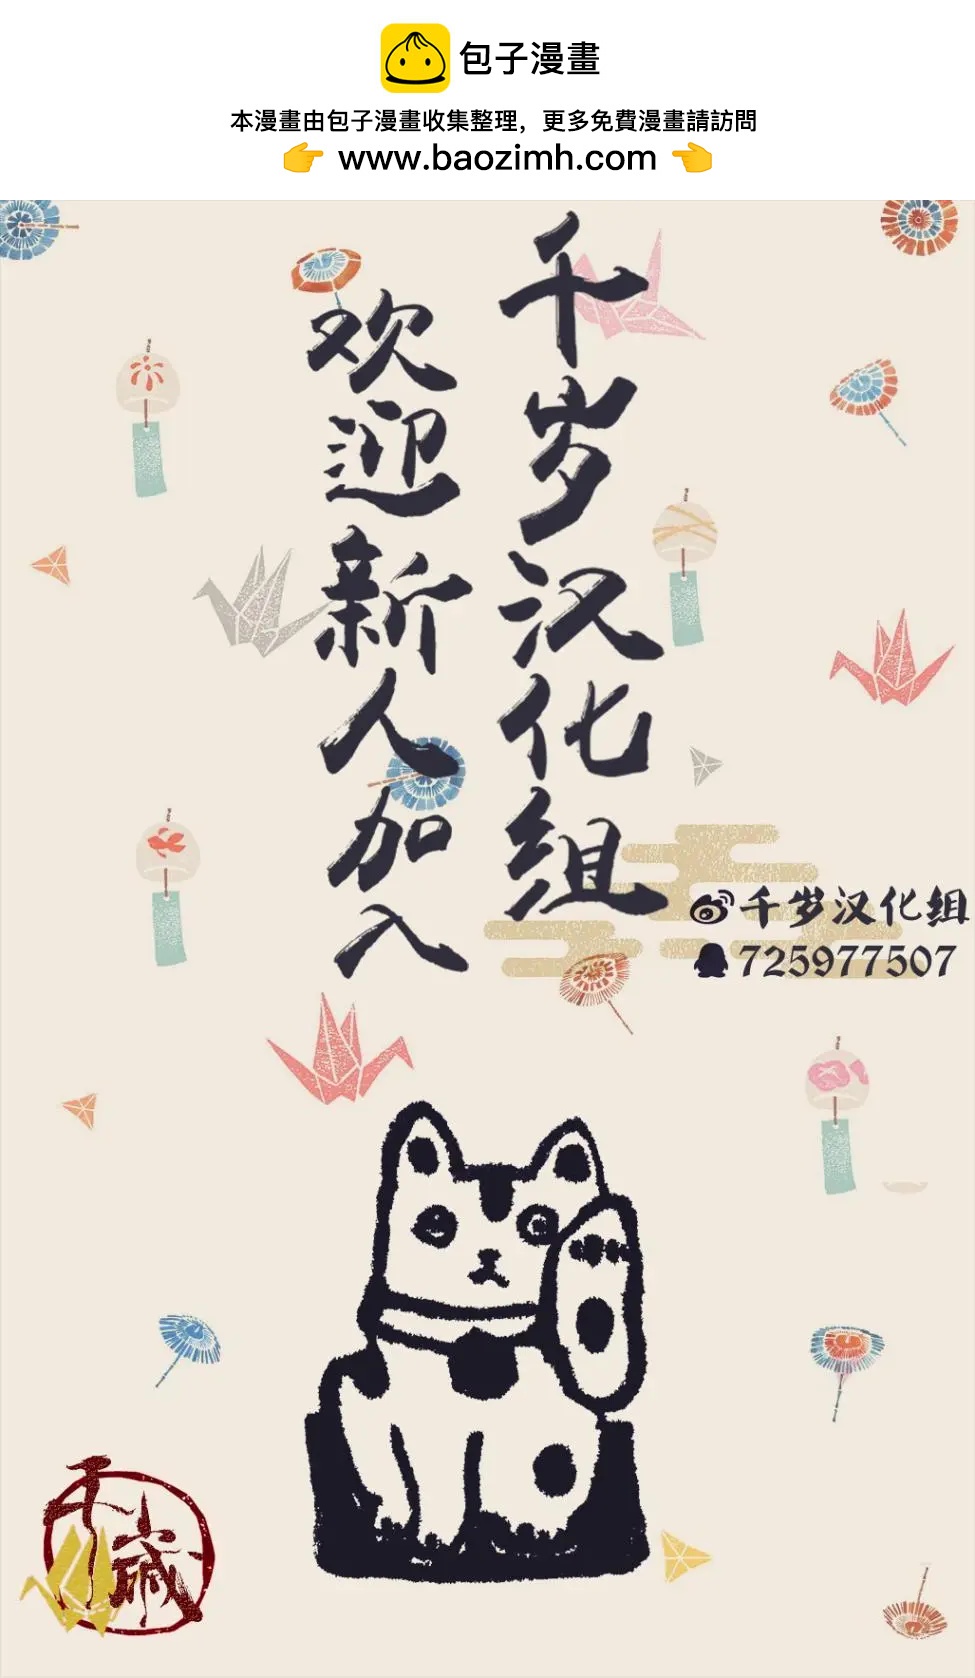 包子漫畫
本漫畫由包子漫畫收集整理，更多免費漫畫請訪問
👉 www.baozimh.com 👈
千岁汉化组
欢迎新人加入
千岁汉化组
725977507
千歳